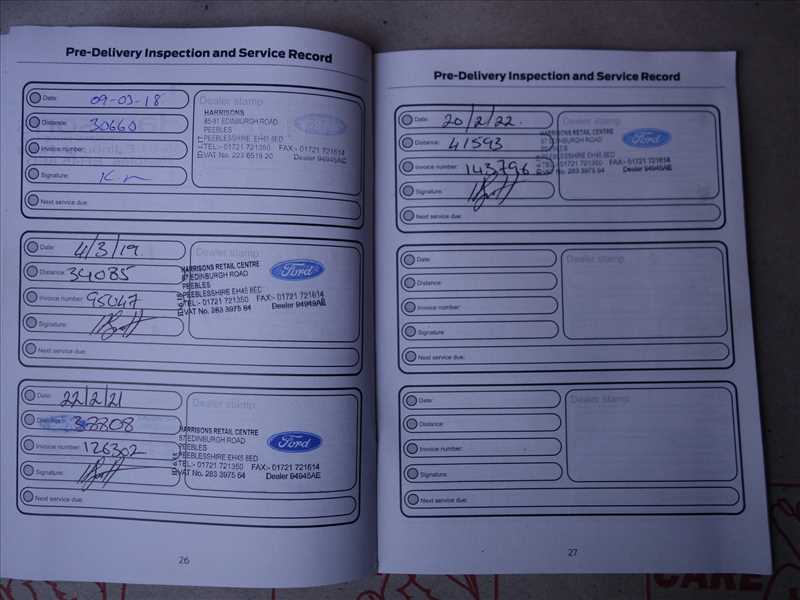 Pre-Delivery Inspection and Service Record
Date: 09-03-18
Distance: 30660
Invoice number:
Signature:
Next service due:
Dealer stamp
HARRISONS
EDINBURGH ROAD
PEEBLES
PEEBLESSHIRE EH45 8ED
TEL:- 01721 721350 FAX:- 01721 721614
VAT No. 223 6519 20 Dealer 94945AE
Ford
Date: 4/3/19.
Distance: 34085
Invoice number: 95047
Signature:
Next service due:
Dealer stamp
HARRISONS RETAIL CENTRE
87 EDINBURGH ROAD
PEEBLES
PEEBLESSHIRE EH45 8ED
TEL:- 01721 721350 FAX:- 01721 721614
VAT No. 283 3975 64 Dealer 94945AE
Ford
Date: 22/2/21
Distance: 38808
Invoice number: 126302
Signature:
Next service due:
Dealer stamp
HARRISONS RETAIL CENTRE
87 EDINBURGH ROAD
PEEBLES
PEEBLESSHIRE EH45 8ED
TEL:- 01721 721350 FAX:- 01721 721614
VAT No. 283 3975 64 Dealer 94945AE
Ford
26
Pre-Delivery Inspection and Service Record
Date: 20/2/22.
Distance: 41593
Invoice number: 143796
Signature:
Next service due:
Dealer stamp
HARRISONS RETAIL CENTRE
87 EDINBURGH ROAD
PEEBLES
PEEBLESSHIRE EH45 8ED
TEL:- 01721 721350 FAX:- 01721 721614
VAT No. 283 3975 64 Dealer 94945AE
Ford
Date:
Distance:
Invoice number:
Signature:
Next service due:
Dealer stamp
Date:
Distance:
Invoice number:
Signature:
Next service due:
Dealer stamp
27
CARE